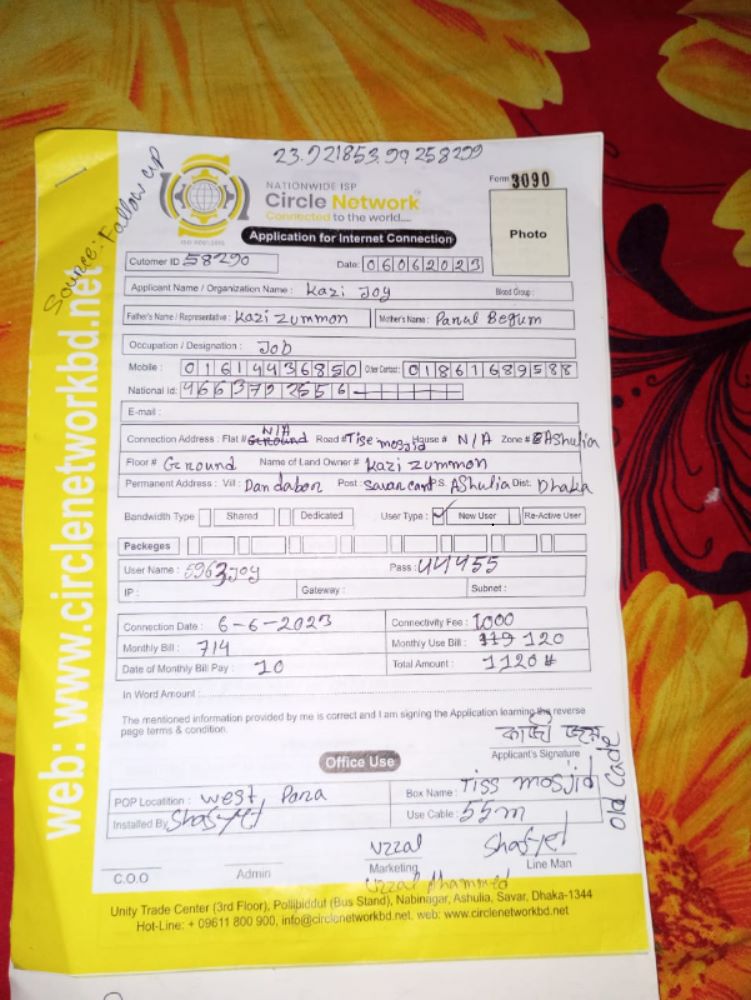 23.921853,90.258299
Source: Follow up
NATIONWIDE ISP
Circle Network
Connected to the world....
ISO 9001:2015
Form 3090
Photo
Application for Internet Connection
Cutomer ID 58290
Date: 06062023
Applicant Name / Organization Name : Kazi Joy Blood Group :
Father's Name / Representative : Kazi Zummon Mother's Name : Parul Begum
Occupation / Designation : Job
Mobile : 01614436850 Other Contact : 01861689588
National Id: 4663722556
E-mail :
Connection Address : Flat # N/A Ground Road # Tise mosjid House # N/A Zone # Ashulia
Floor # Ground Name of Land Owner # Kazi Zummon
Permanent Address : Vill : Dandabor Post : Savar cant P.S. AShulia Dist: Dhaka
Bandwidth Type Shared Dedicated User Type : New User Re-Active User
Packeges
User Name : 5963joy Pass : 44455
IP : Gateway : Subnet :
Connection Date : 6-6-2023 Connectivity Fee : 1000
Monthly Bill : 714 Monthly Use Bill : 119 120
Date of Monthly Bill Pay : 10 Total Amount : 1120
In Word Amount :
The mentioned information provided by me is correct and I am signing the Application learning the reverse
page terms & condition.
কাজী জয়
Applicant's Signature
Office Use
POP Locatition : West Para Box Name : Tiss mosjid
Installed By Shafyet Use Cable : 55m
Old Code
Uzzal Shafyet
C.O.O Admin Marketing Line Man
Uzzal Ahammed
Unity Trade Center (3rd Floor), Pollibiddut (Bus Stand), Nabinagar, Ashulia, Savar, Dhaka-1344
Hot-Line: + 09611 800 900, info@circlenetworkbd.net, web: www.circlenetworkbd.net
web: www.circlenetworkbd.net